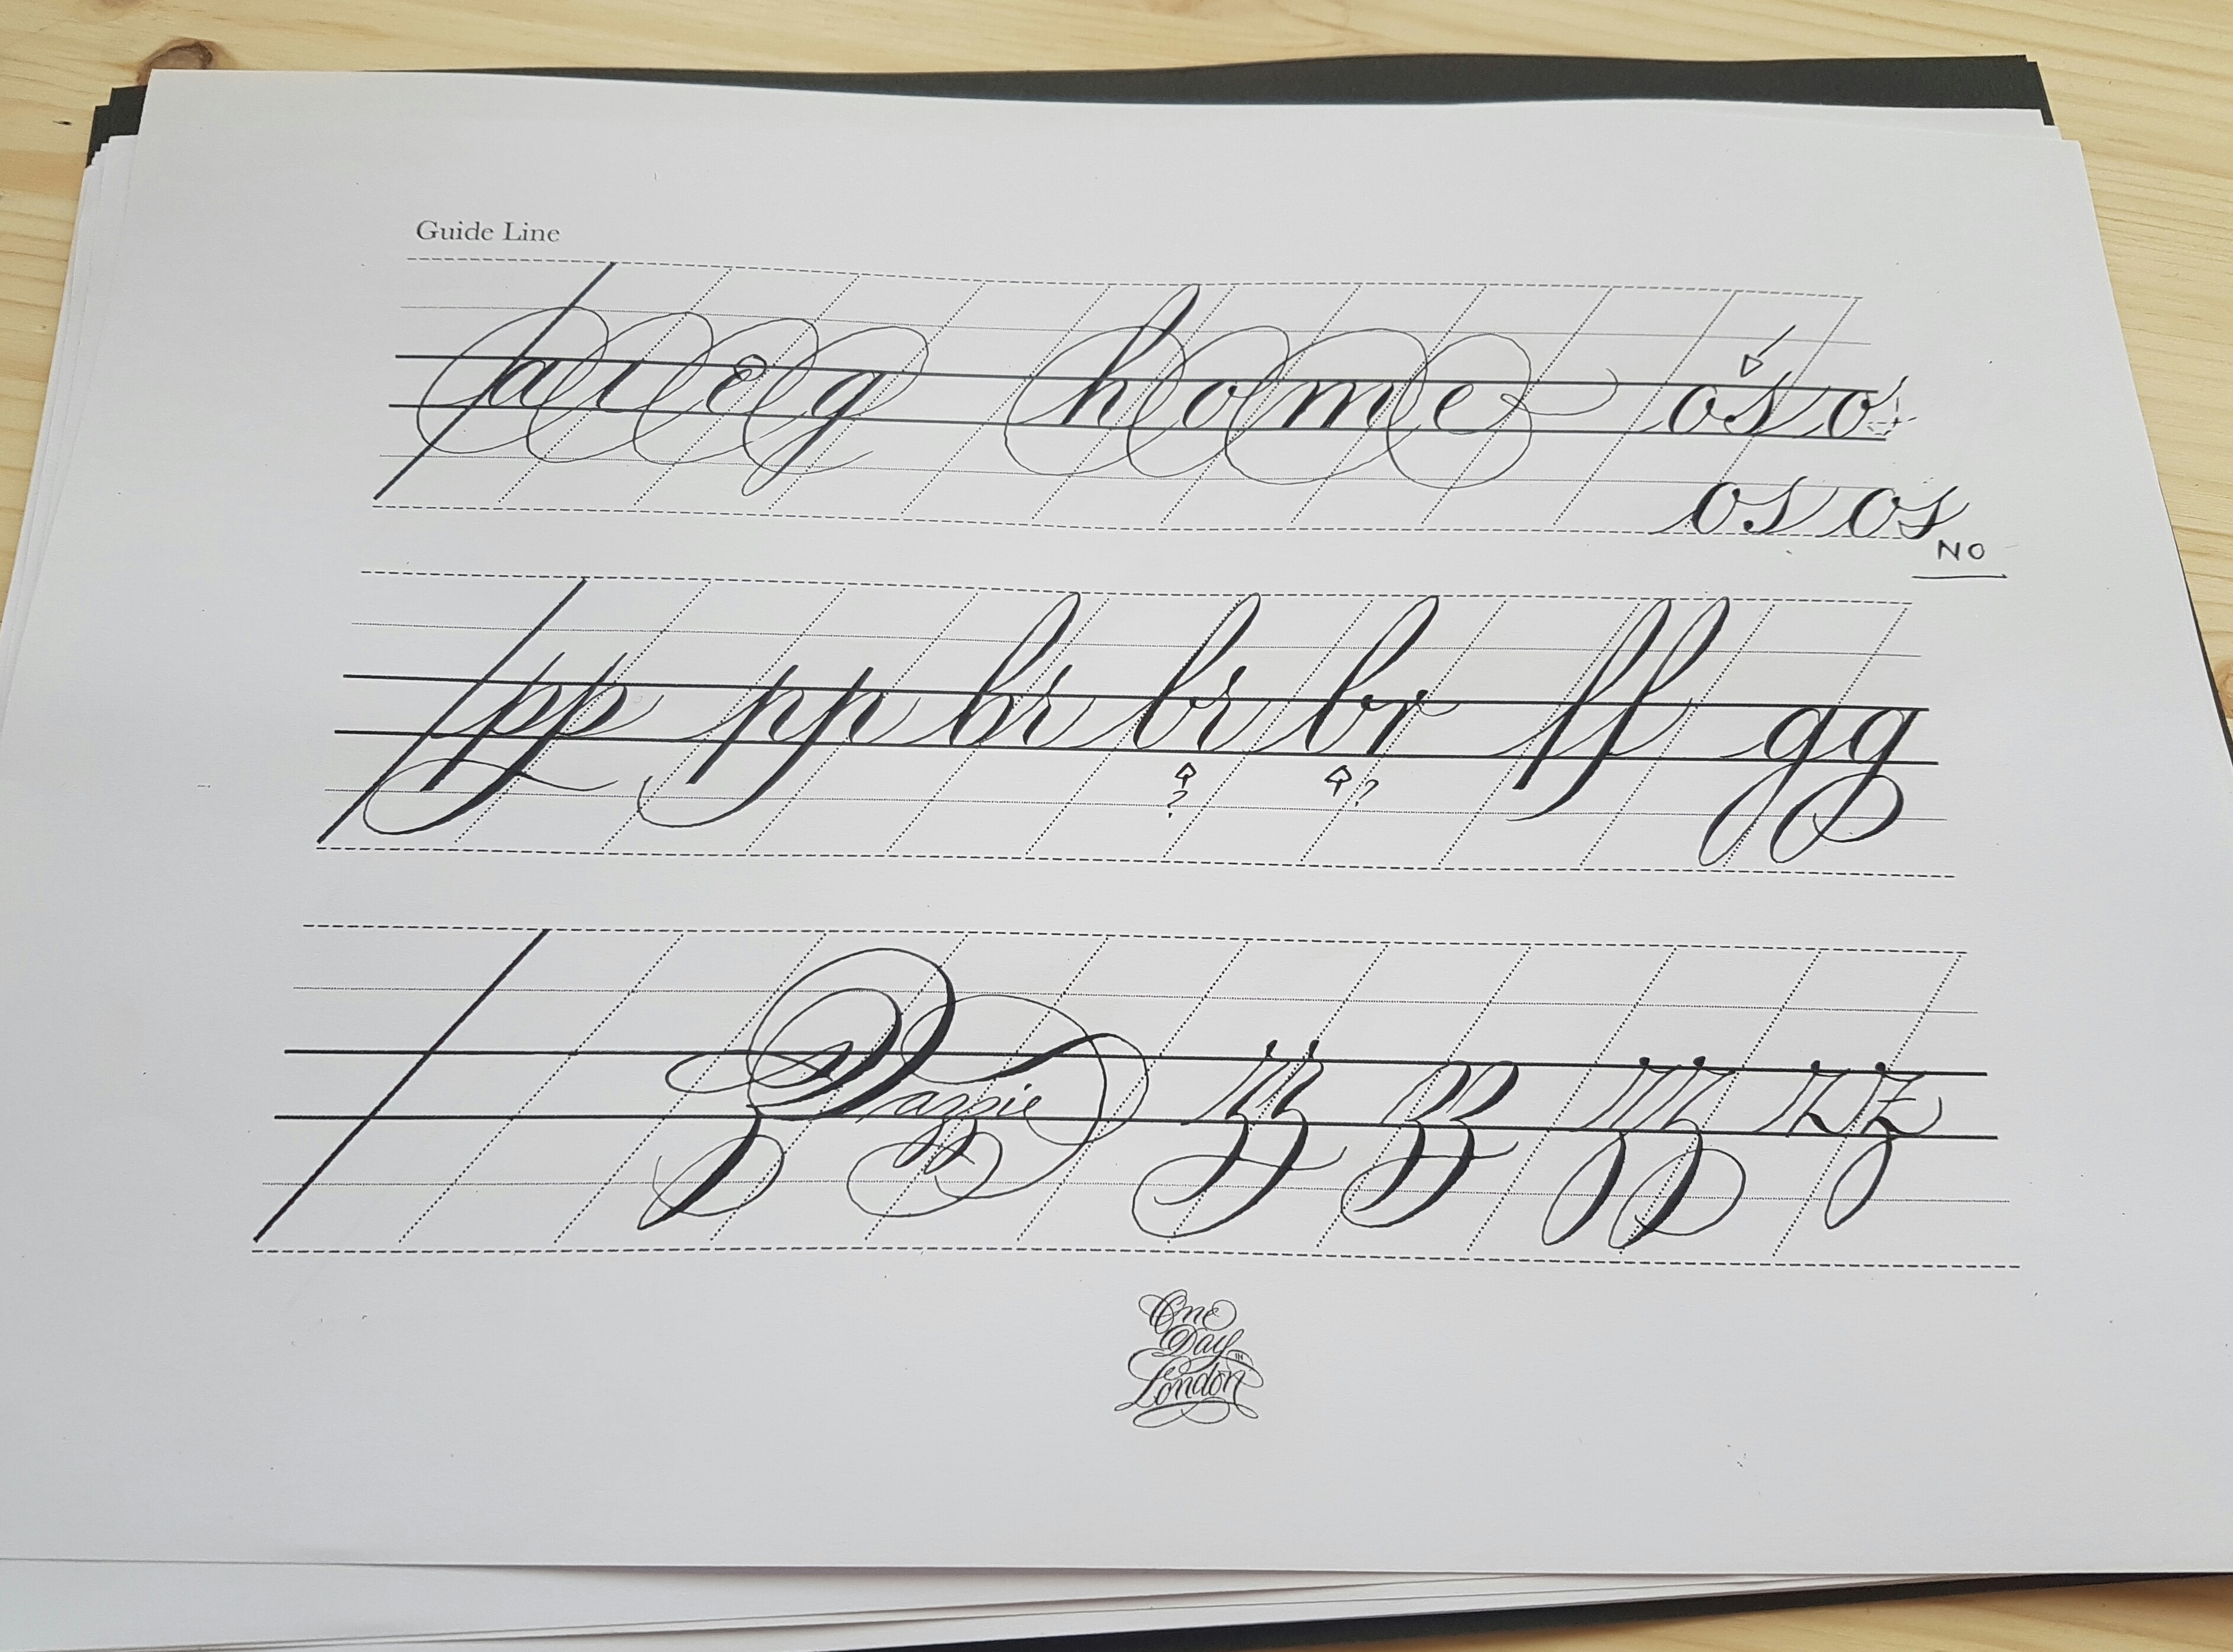 Guide Line
home os o
os os
NO
pp pp br br br ff gg
? ?
zz zz zz zz
One
Day
IN
London